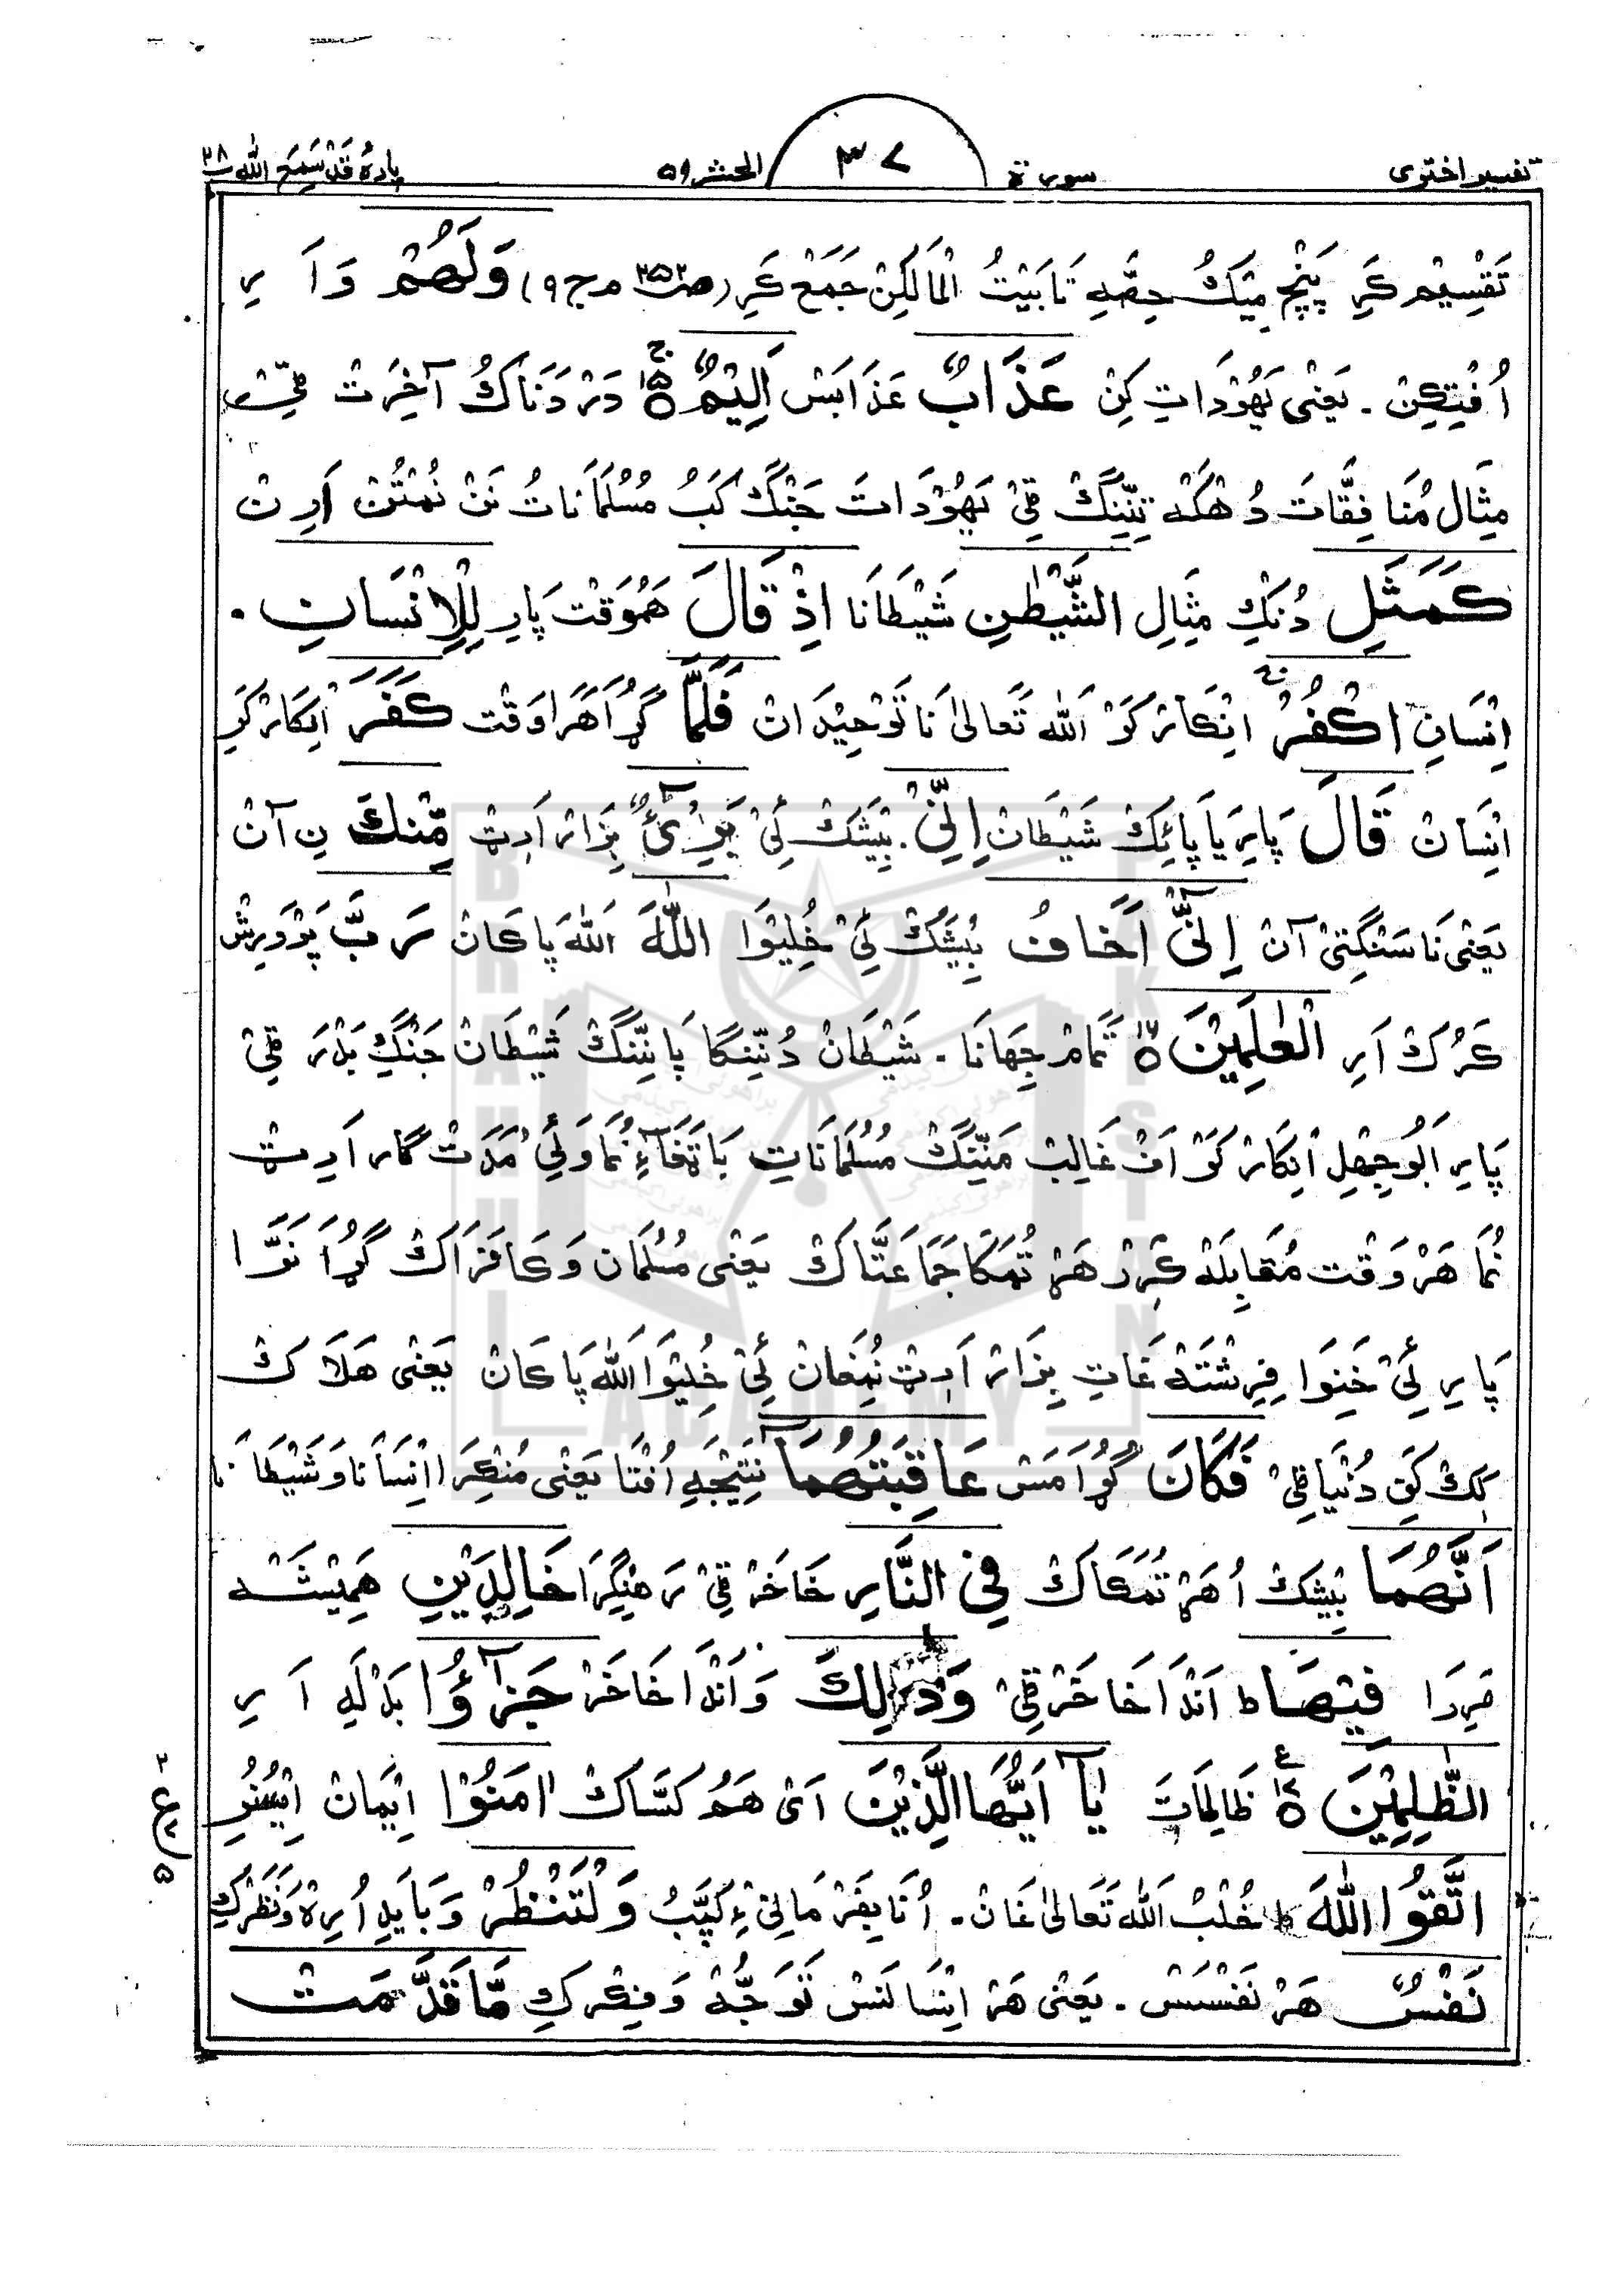 تفسیر اختری
سورة
٣٧
الحشر ٥٩
پارہ قَدْ سَمِعَ اللّٰہ ٢٨
تَقْسِیْم کَرِ پَنْچ مِیْکُ حِصَّہِ تَا بَیْتُ الْمَالِکِنْ جَمَعْ کَرِ (صـ٣٥٢ ج ٩) وَلَهُمْ وَ اَ رِ
اُفْتِکِنْ ۔ یَعْنِی یَہُوْدَاتِ کِنْ عَذَابٌ عَذَابَسْ اَلِیْمٌ ۝١٥ دَرْدَنَاکُ آخِرَتْ ٹِیْ
مِثَالِ مُنَافِقَّاتَ دُهْکَه تِنِّنْگ ٹِیْ یَہُوْدَاتَ جَنْگ کَبُ مُسُلمَانَاتُ نَنْ نُمْتُنْ اَرِنْ
کَمَثَلِ دُنْکِ مِثَالِ الشَّیْطٰنِ شَیْطَانَا اِذْ قَالَ هَمُوَقْت پَارِ لِلْاِنْسَانِ ۔
اِنْسَانِ اکْفُرْ اِنْکَارْ کَرْ اَللہ تَعالیٰ نَا تَوْحِیْدَانْ فَلَمَّا گُڑَا هَرَاوَقْت کَفَرَ اِنکَارْ کَرِ
اِنْسَانْ قَالَ پَارِ یَا پَائِکْ شَیْطَانْ اِنِّیْ ۔ بِیْشَکْ ئِیْ بَرِیْٓءٌ بِزَارْ اَرِٹْ مِّنْكَ نِ آنْ
یَعْنِی نَا سَنْگَتِیْ آنْ اِنِّیْٓ اَخَافُ بِیْشَکْ ئِیْ خُلِیْوَا اللّٰهَ اَللہ پَاکَانْ رَبَّ پَرْوَرِشْ
کَرُکْ اَرِ الْعٰلَمِیْنَ ۝١٦ تَمَامْ جِهَانَا ۔ شَیْطَانْ دُنِّنْگا پَانِّنْگْ شَیْطَانْ جَنْگِ بَدْرَ ٹِیْ
پَارِ اَبُوجِهْلِ اِنکَارْ کَرْ اَنْ غَالِبْ مَنِّنْگْ مُسُلمَانَاتِ بَاتَفَاءِ نُمَا وَ ئِیْ مَدَتْ گار اَرِٹ
نُمَا هَرْوَقْت مُقَابِلَهْ کَرِرْ هَرْ تُمَکَا جَمَاعَتَّاکْ یَعْنِی مُسُلمَان وَ کَافِرَاکْ گُڑَا نَرَّا
پَارِ ئِیْ خَنِوَا فِرِشْتَهْ غَاتِ بِزَارْ اَرِٹْ نُمْغَانْ ئِیْ خُلِیْوَا اَللہ پَاکَانْ یَعْنِی هَلَاکْ
کَکْ کَنِ دُنْیَا ٹِیْ فَکَانَ گُڑَا مَسْ عَاقِبَتَهُمَآ نَتِیْجَهِ اُفْتَا یَعْنِی مُنْکِرَا اِنْسَانَا وَ شَیْطَانَا
اَنَّهُمَا بِیْشَکْ اُ هَرْ تُمَکَاکْ فِی النَّارِ خَاخَرْ ٹِیْ رَهِنْگِرَا خَالِدَیْنِ هَمِیْشَه
مَرِرَا فِیْهَا ط اَنْدَا خَاخَرْ ٹِیْ وَذٰلِكَ وَ اَنْدَا خَاخَرْ جَزٰٓؤُا بَدْلَهِ اَ رِ
الظّٰلِمِیْنَ ۝١٧ ع ظَالِمَاتَ یٰٓا اَیُّهَا الَّذِیْنَ اَیْ هَمُ کَسَّاکْ اٰمَنُوْا اِیْمَانْ اِیْسُنُرِ
اتَّقُوا اللّٰهَ ط خُلْبُ اَللہ تَعَالیٰ غَانْ ۔ اُنَا بِفَرْمَانِیْ ءِ کَپَّبُ وَلْتَنْظُرْ وَ بَایَدِ اُرِہْ وَ نَظَرْ کِ
نَفْسٌ هَرْ نَفْسَسْ ۔ یَعْنِی هَرْ اِنْسَانَسْ تَوَجُّهْ وَ فِکْر کِ مَّا قَدَّمَتْ
٢
ع
٥
BRAHUI ACADEMY PAKISTAN